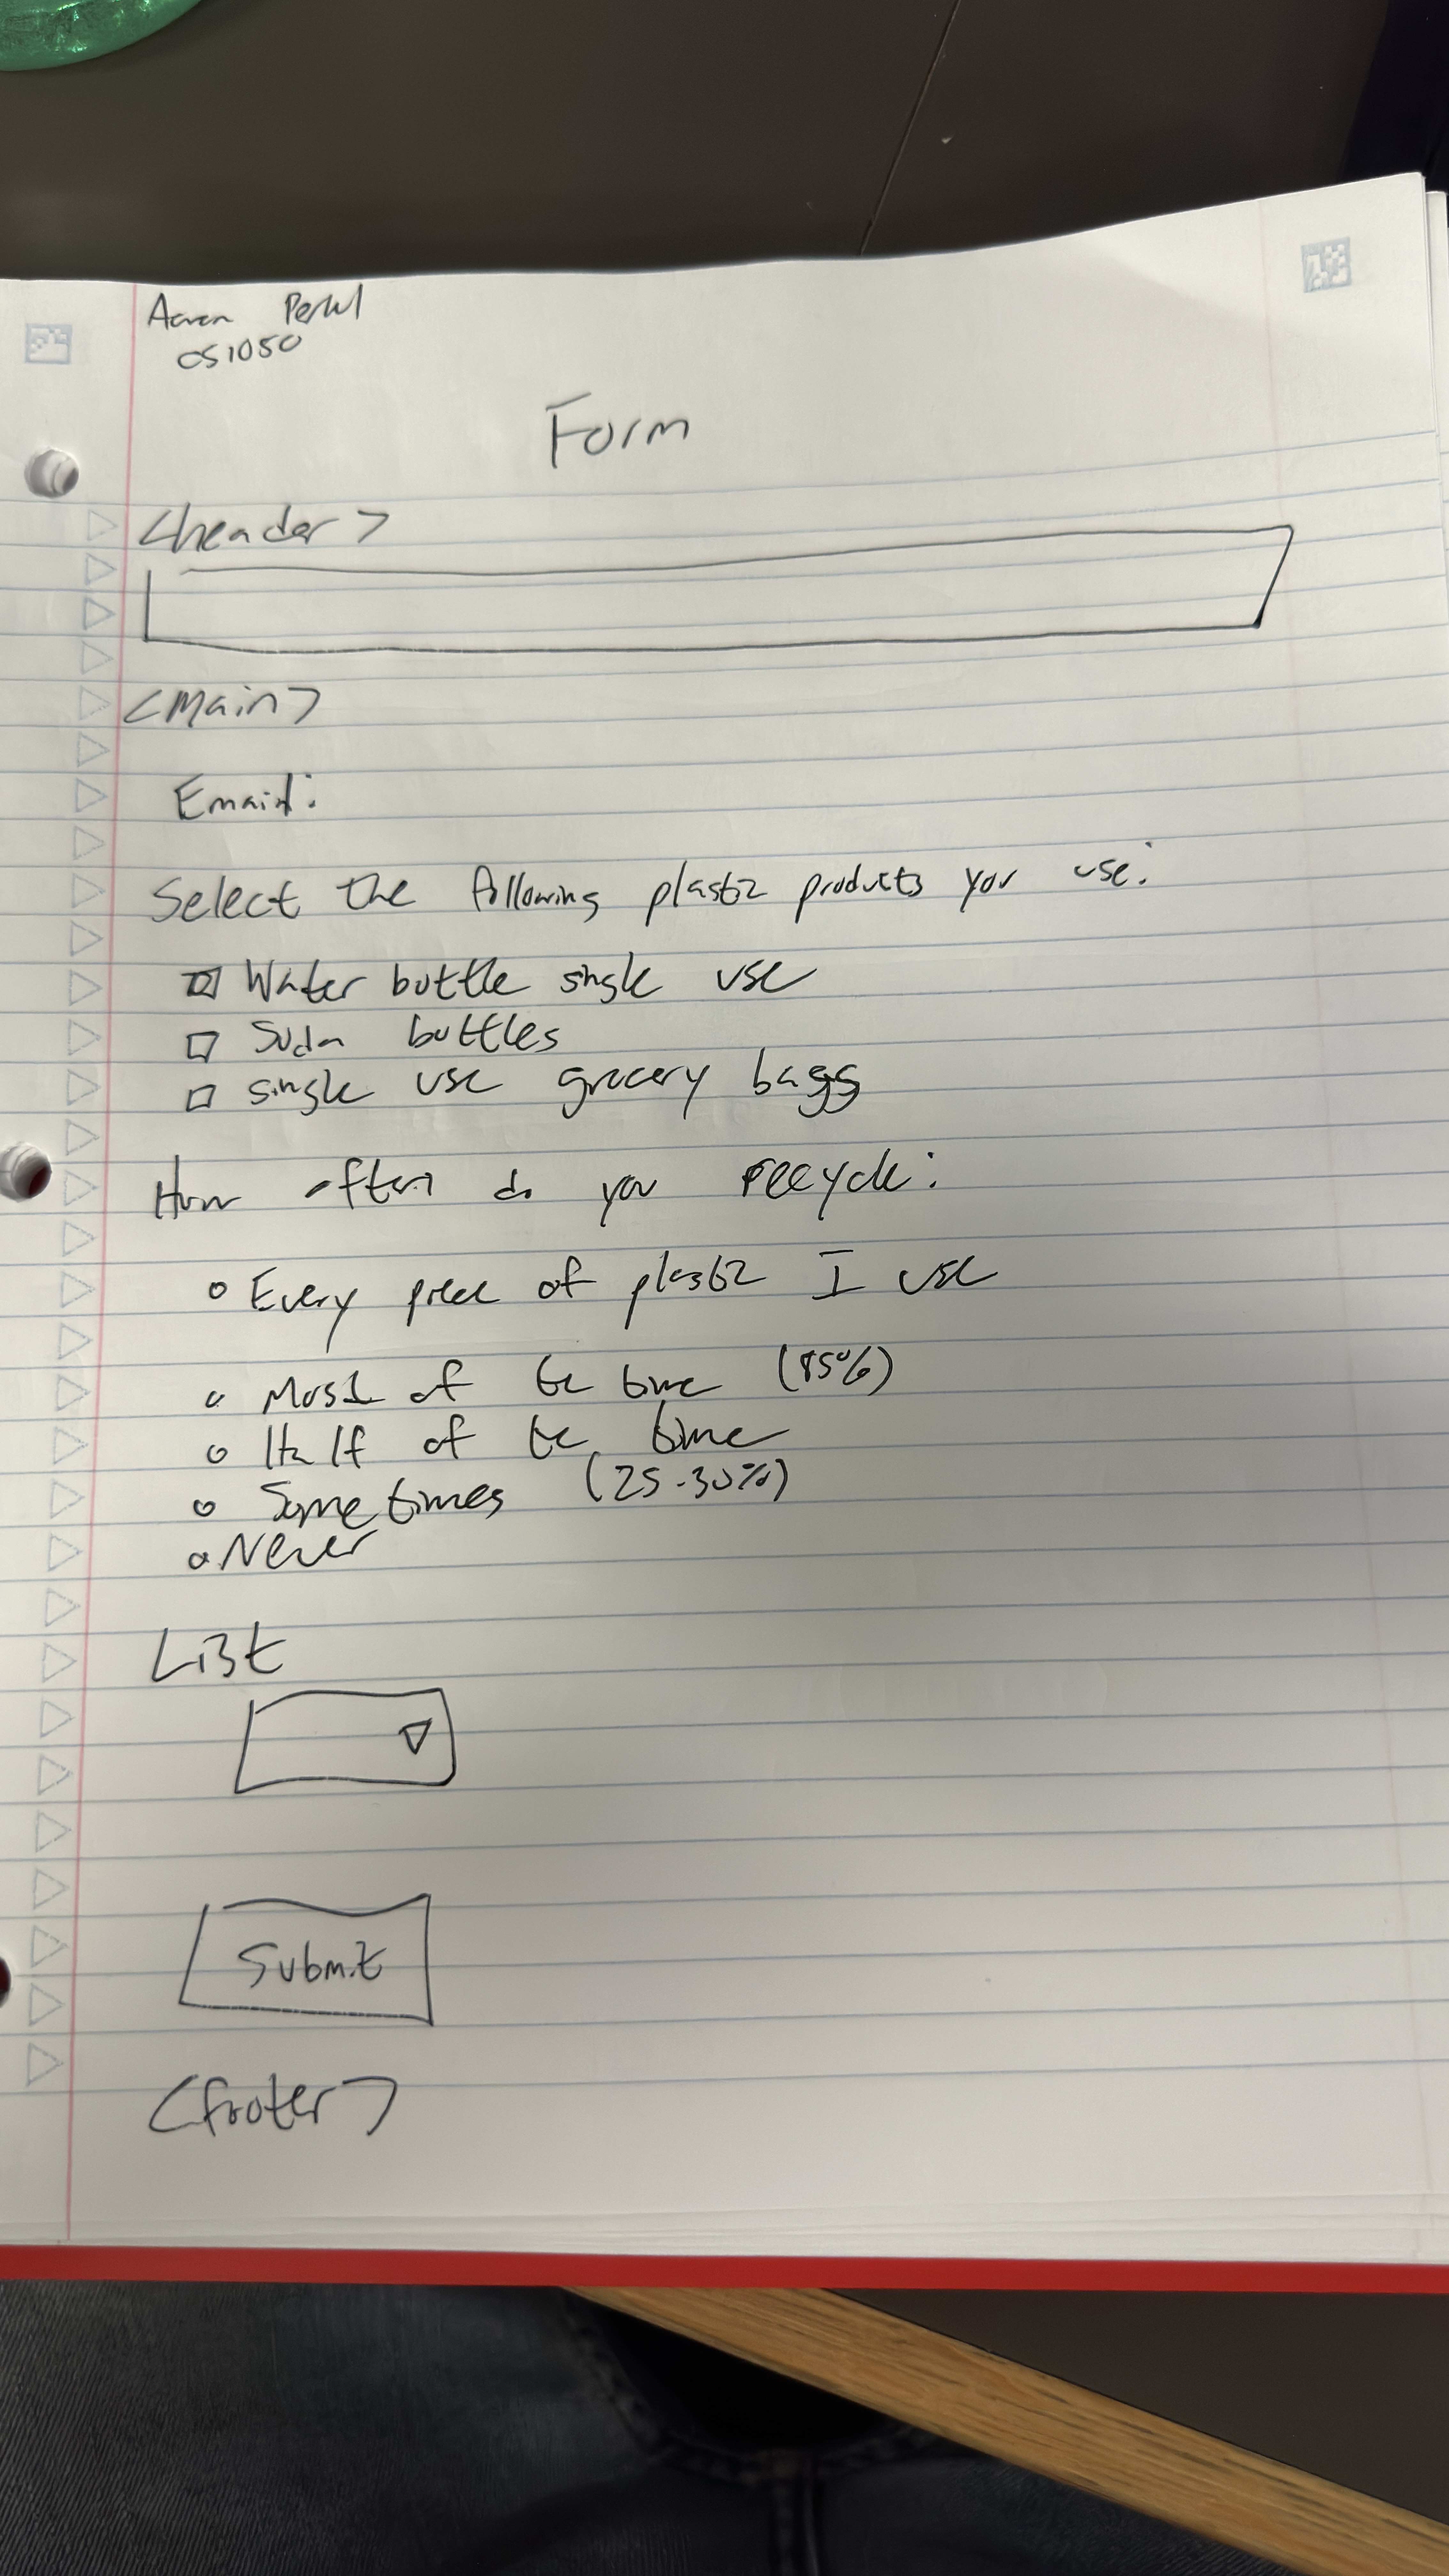 Aaron
CS1050
Form
<header>
<Main>
Email:
Select the following plastic products you use:
Water bottle single use
Soda bottles
single use grocery bags
How often do you recycle:
Every piece of plastic I use
Most of the time (85%)
Half of the time
Sometimes (25-30%)
Never
List
Submit
<footer>